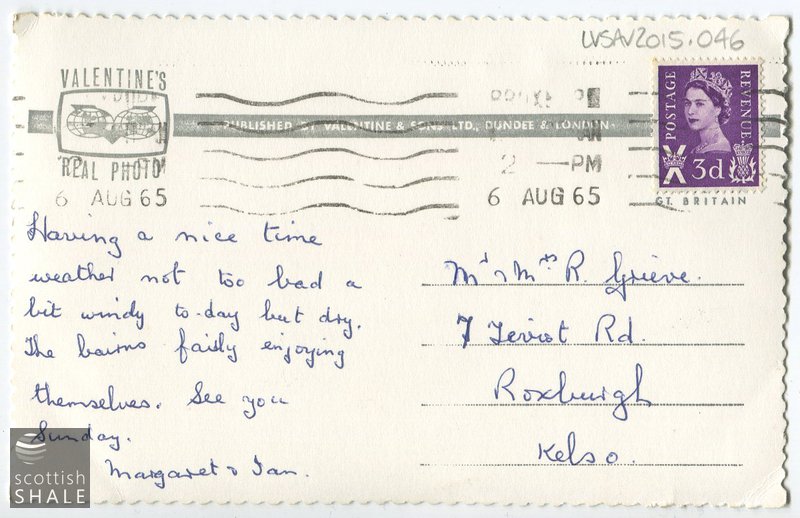 LVSAV2015.046
VALENTINE'S
REAL PHOTO
6 AUG 65
PUBLISHED BY VALENTINE & SONS LTD., DUNDEE & LONDON
2 —PM
6 AUG 65
POSTAGE
REVENUE
3d
GT. BRITAIN
Having a nice time
weather not too bad a
bit windy to-day but dry.
The bairns fairly enjoying
themselves. See you
Sunday.
Margaret & Ian.
Mr & Mrs R. Grieve.
7 Teviot Rd.
Roxburgh
Kelso.
scottish
SHALE